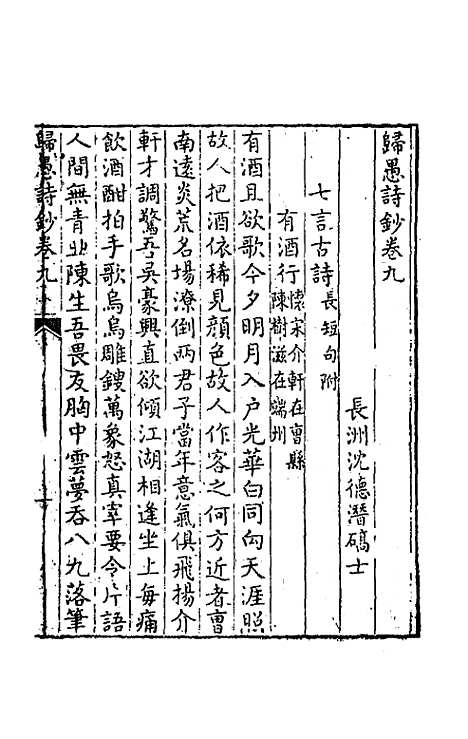 歸愚詩鈔卷九
長洲沈德潛碻士
七言古詩長短句附
有酒行懷宋介軒在曹縣陳樹滋在端州
有酒且欲歌今夕明月入户光華白同勾天涯照
故人把酒依稀見顏色故人作客之何方近者曹
南遠炎荒名場潦倒兩君子當年意氣俱飛揚介
軒才調驚吾吳豪興直欲傾江湖相逢坐上每痛
飲酒酣拍手歌烏烏雕鎪萬象怒真宰要令片語
人間無青丠陳生吾畏友胸中雲夢吞八九落筆
歸愚詩鈔卷九